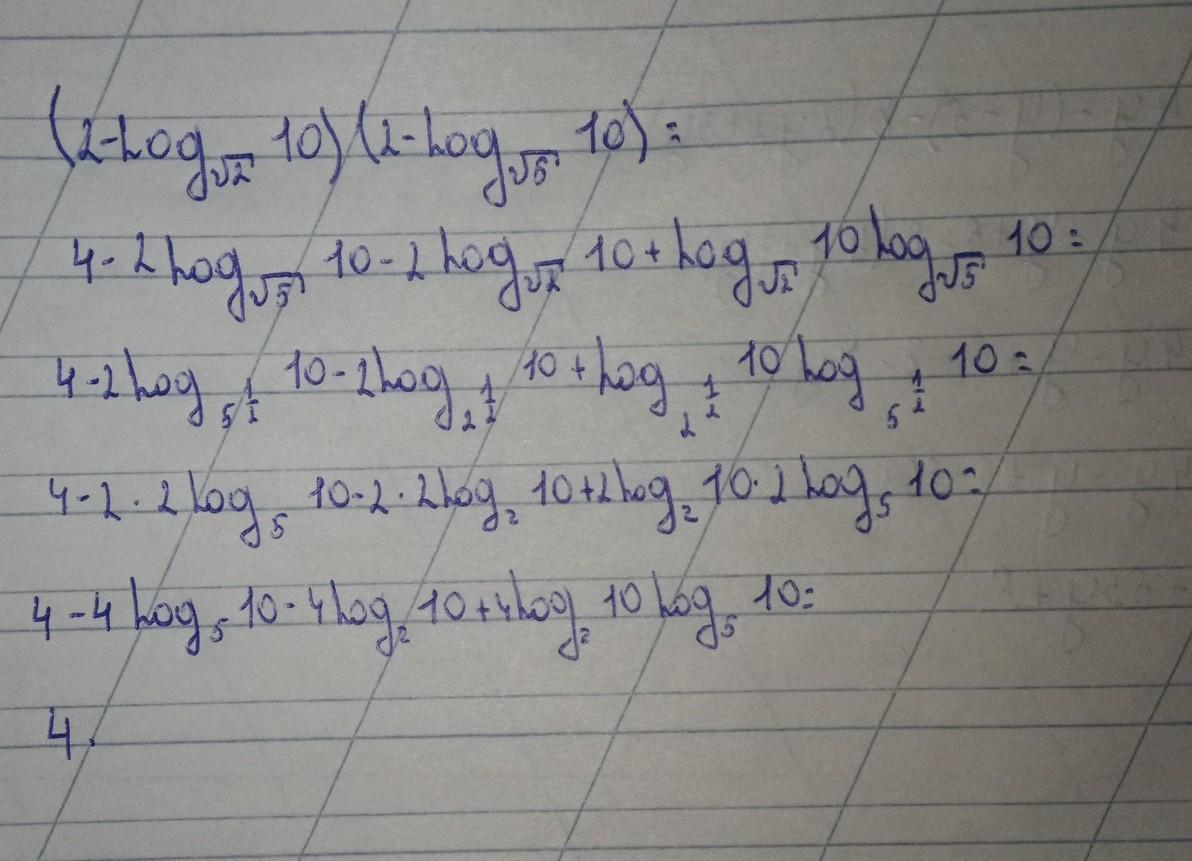 (2-log_√2 10)(2-log_√5 10)=
4-2log_√5 10-2log_√2 10+log_√2 10log_√5 10=
4-2log_5^(1/2) 10-2log_2^(1/2) 10+log_2^(1/2) 10log_5^(1/2) 10=
4-2·2log_5 10-2·2log_2 10+2log_2 10·2log_5 10=
4-4log_5 10-4log_2 10+4log_2 10log_5 10=
4.